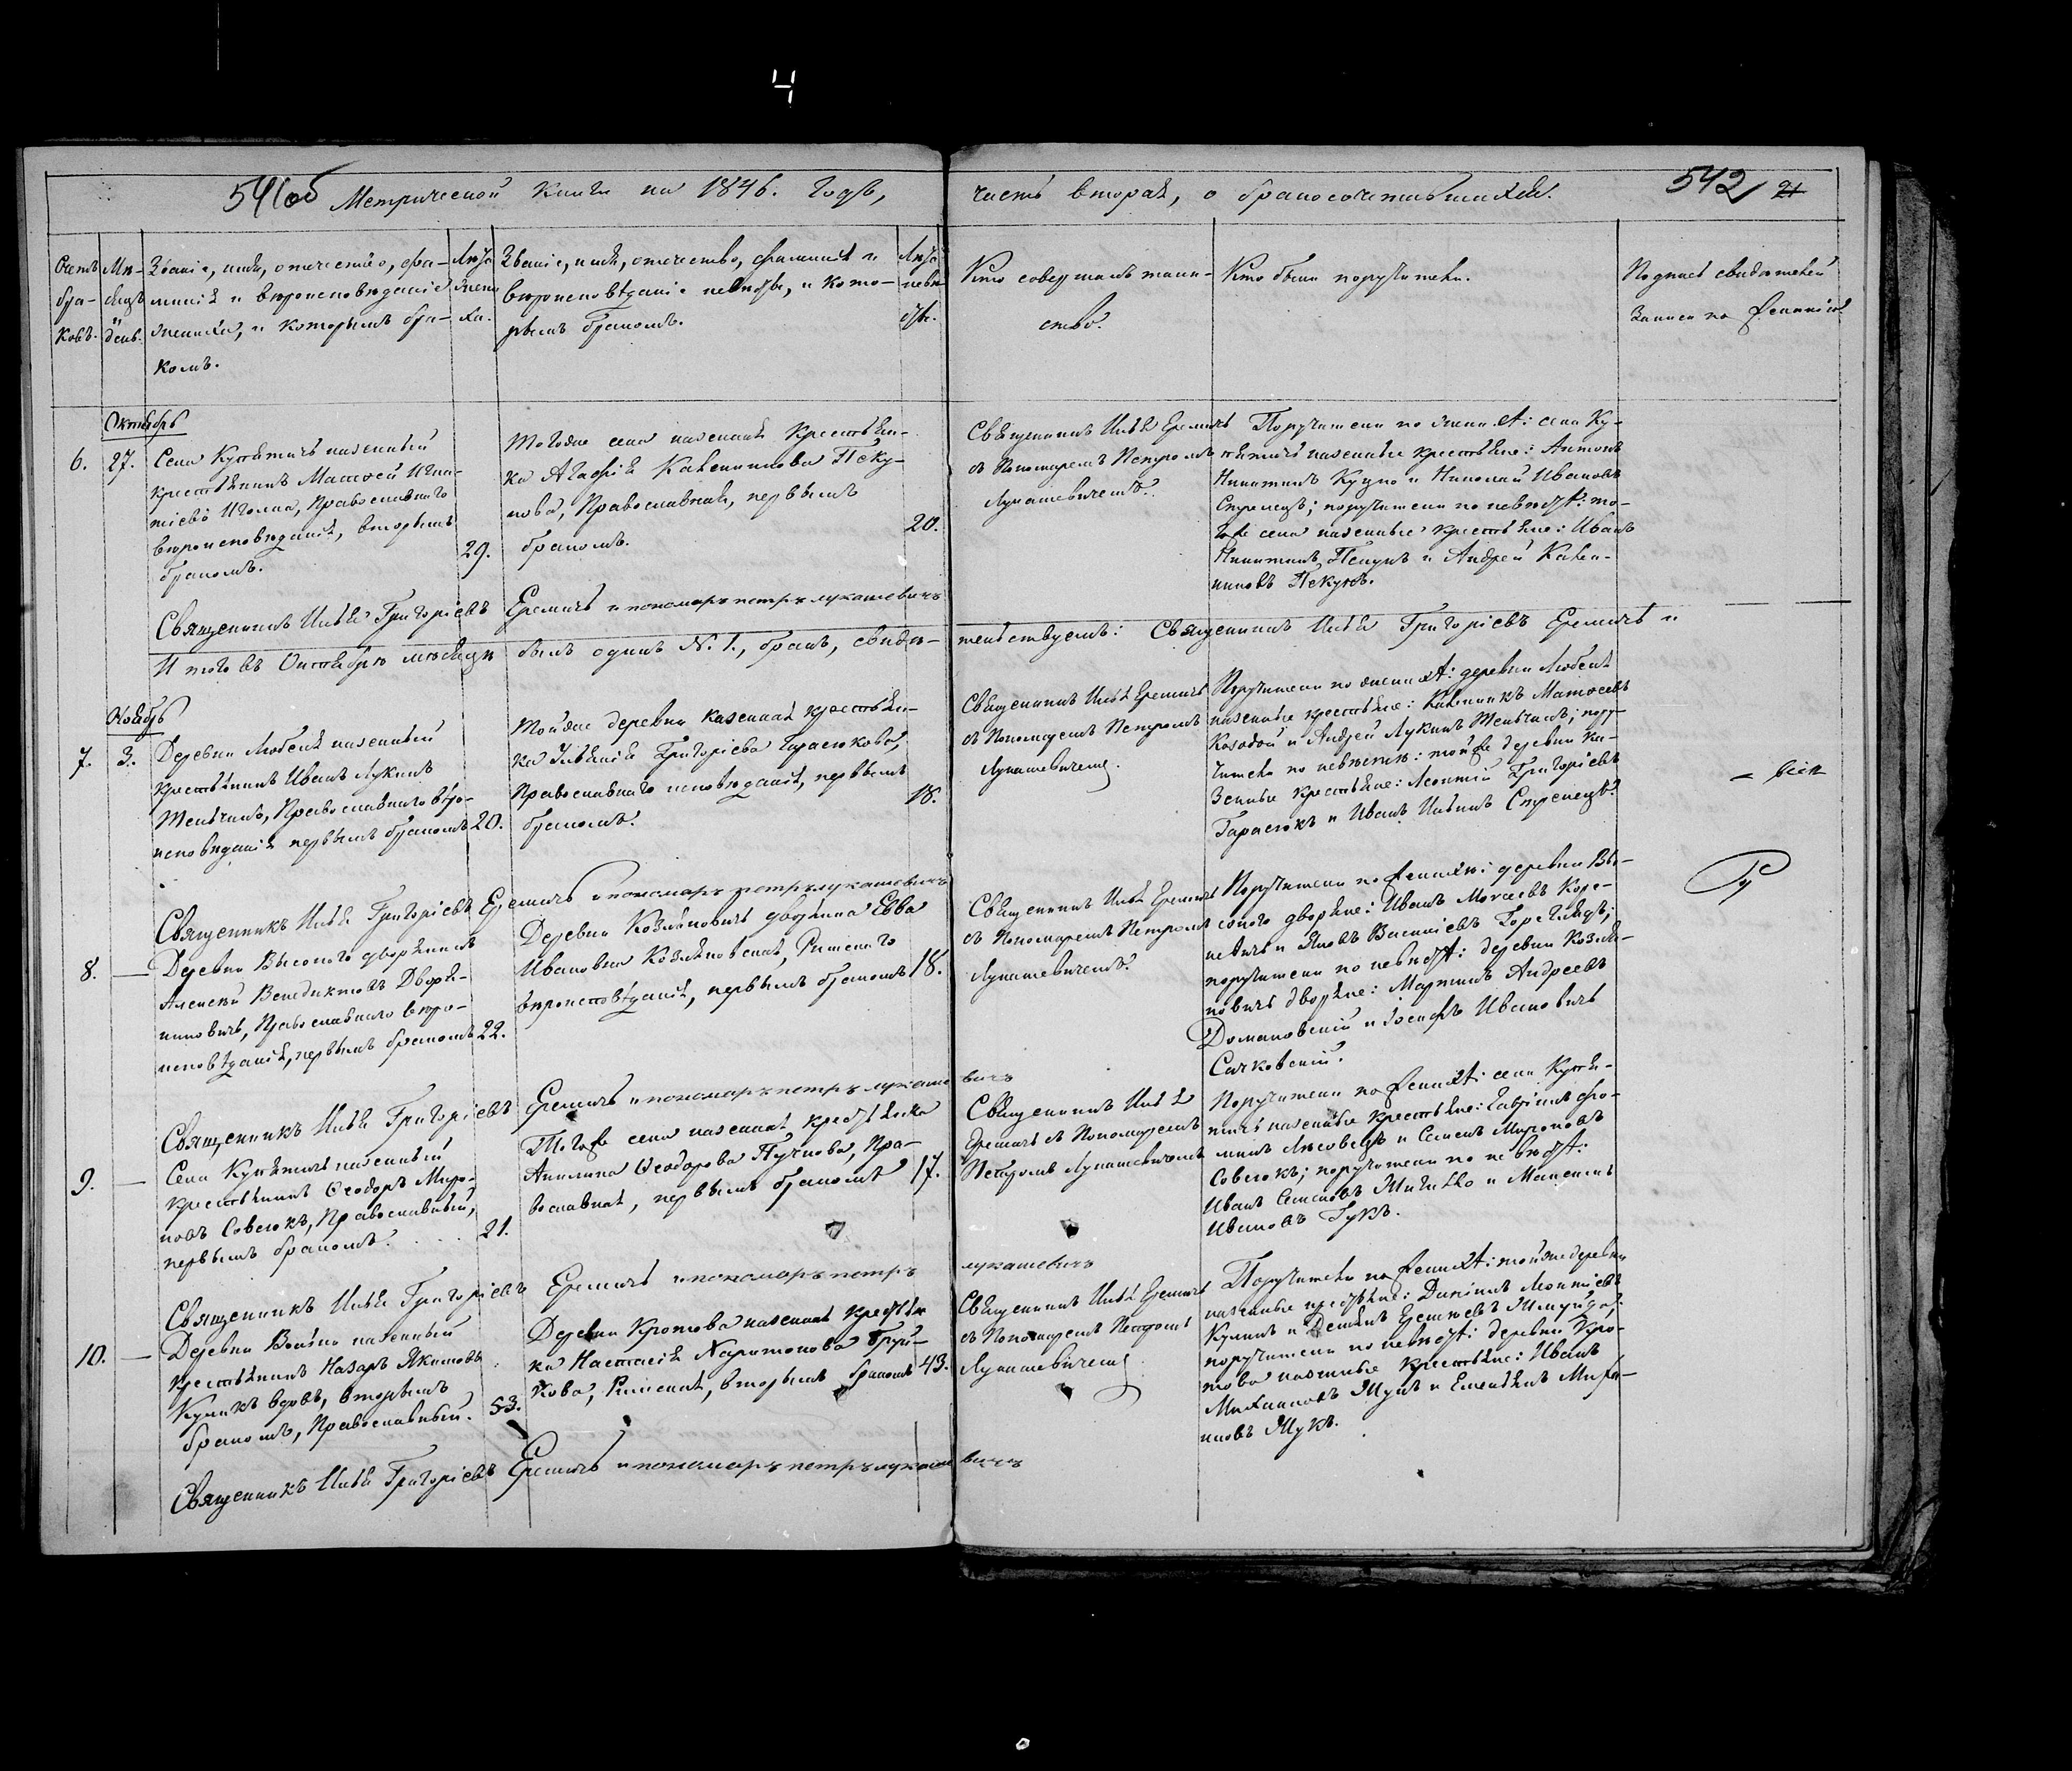 4
541об Метрической Книги на 1846. Годъ, часть вторая, о бракосочетавшихся. 542 21
Счетъ бра- ковъ.
Мѣ- сяцъ и день.
Званіе, имя, отечество, фа-
милія и вѣроисповѣданіе
жениха, и которымъ бра-
комъ.
Лѣта жени- ха.
Званіе, имя, отечество, фамилія и
вѣроисповѣданіе невѣсты, и кото-
рымъ бракомъ.
Лѣта невѣ- сты.
Кто совершалъ таин-
ство.
Кто были поручители.
Подпись свидѣтелей
записи по желанію
Октябрь
6. 27.
Села Кужѣличь казенный
крестьянинъ Матѳей Игна-
тіевъ Иголка, Православнаго
вѣроисповѣданія, вторымъ
бракомъ.
29.
Тогоже села казенная крестьян-
ка Агафія Каленикова Пеку-
нова, Православная, первымъ
бракомъ.
20.
Священникъ Илья Еремичь
съ Пономаремъ Петромъ
Лукашевичемъ.
Поручители по женихѣ: села Ку-
жѣличь казенные крестьяне: Антонъ
Никитинъ Куцко и Николай Ивановъ
Стрелецъ; поручители по невѣстѣ: то-
гоже села казенные крестьяне: Иванъ
Никитинъ Пекунъ и Андрей Кале-
никовъ Пекунъ.
Священникъ Илья Григоріевъ Еремичь и пономарь петръ лукашевичъ
Итого въ Октябрѣ мѣсяцѣ былъ одинъ N. 1., бракъ, свидѣ- тельствуемъ: Священникъ Илья Григоріевъ Еремичь и
Ноябрь
7. 3.
Деревни Любеля казенный
крестьянинъ Иванъ Лукинъ
Женчикъ, Православнаго вѣро-
исповѣданія первымъ бракомъ
20.
Тойже деревни казенная крестьян-
ка Ульянія Григоріева Тарасюкова,
Православнаго исповѣданія, первымъ
бракомъ.
18.
Священникъ Илья Еремичь
съ Пономаремъ Петромъ
Лукашевичемъ.
Поручители по женихѣ: деревни Любеля
казенные крестьяне: Каленикъ Матѳеевъ
Козодой и Андрей Лукинъ Женчикъ; пору-
чители по невѣстѣ: тойже деревни ка-
зенные крестьяне: Леонтій Григоріевъ
Тарасюкъ и Иванъ Ильинъ Стрелецъ.
Священникъ Илья Григоріевъ Еремичь и пономарь петръ лукашевичъ
8. —
Деревни Высокого дворянинъ
Алексѣй Венедиктовъ Дворя-
ниновичь, Православнаго вѣро-
исповѣданія, первымъ бракомъ
22.
Деревни Козляковичь дворянка Евва
Ивановна Козляковская, Римскаго
вѣроисповѣданія, первымъ бракомъ
18.
Священникъ Илья Еремичь
съ Пономаремъ Петромъ
Лукашевичемъ.
Поручители по женихѣ: деревни Вы-
сокого дворяне: Иванъ Моисеевъ Коре-
невичь и Яковъ Василіевъ Горегляцъ;
поручители по невѣстѣ: деревни Козля-
ковичь дворяне: Мартинъ Андреевъ
Домановскій и Іосифъ Ивановичь
Сачковскій.
Священникъ Илья Григоріевъ Еремичь и пономарь петръ лукаше вичъ
9. —
Села Кужѣличь казенный
крестьянинъ Ѳеодоръ Миро-
новъ Совсюкъ, Православный,
первымъ бракомъ.
21.
Тогоже села казенная крестьянка
Акилина Ѳеодорова Пучкова, Пра-
вославная, первымъ бракомъ
17.
Священникъ Илья
Еремичь съ Пономаремъ
Петромъ Лукашевичемъ
Поручители по женихѣ: села Кужѣ-
личь казенные крестьяне: Гавріилъ Фо-
минъ Лисовецъ и Семенъ Мироновъ
Совсюкъ; поручители по невѣстѣ:
Иванъ Семеновъ и Максимъ
Ивановъ Гукъ.
Священникъ Илья Григоріевъ Еремичь и пономарь петръ лукашевичъ
10. —
Деревни Войно казенный
крестьянинъ Назаръ Якимовъ
Куликъ вдовъ, вторымъ
бракомъ, Православный.
53.
Деревни Кротова казенная крестьян
ка Настасія Харитонова Груй-
кова, Римская, вторымъ бракомъ
43.
Священникъ Илья Еремичь
съ Пономаремъ Петромъ
Лукашевичемъ
Поручители по женихѣ: тойже деревни
казенные крестьяне: Даніилъ Леонтіевъ
Куликъ и Демьянъ
поручители по невѣстѣ: деревни Кро-
това казенные крестьяне: Иванъ
Михаиловъ Жукъ и Емельянъ Миха-
иловъ Жукъ.
Священникъ Илья Григоріевъ Еремичь и пономарь петръ лукаше вичъ